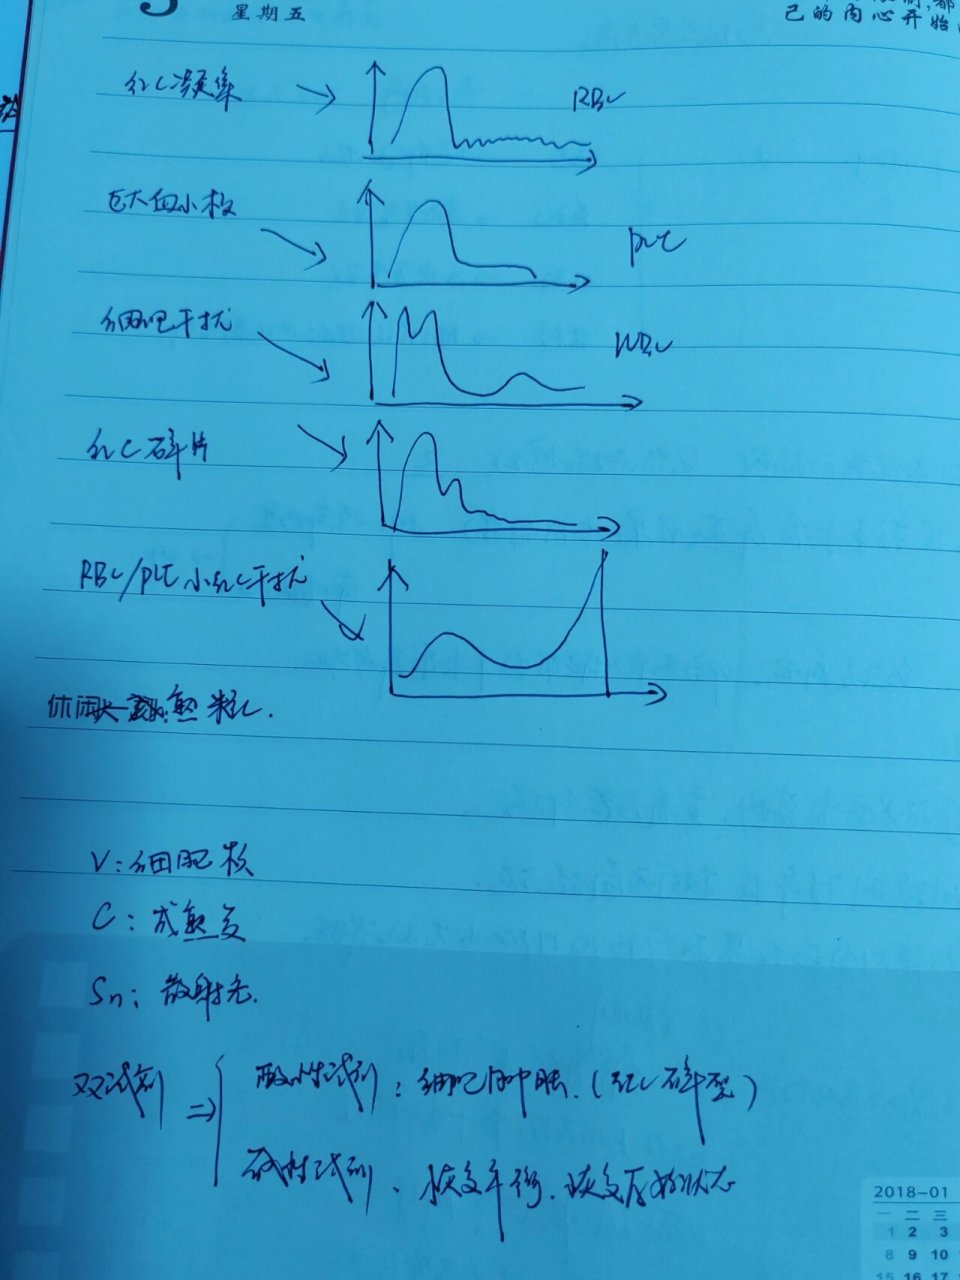 星期五
己的内心开始
红C凝集 → RBC
巨大血小板 PLT
细胞干扰 WBC
红C碎片
RBC/PLT 小红C干扰
休闲
V:细胞核
C:成熟度
Sn:散射光.
双试剂 ⇒
酸性试剂:细胞肿胀.(红C碎裂)
碱性试剂、恢复平衡.恢复原始状态
2018-01
一 二 三
1 2 3
8 9 10
15 16 17